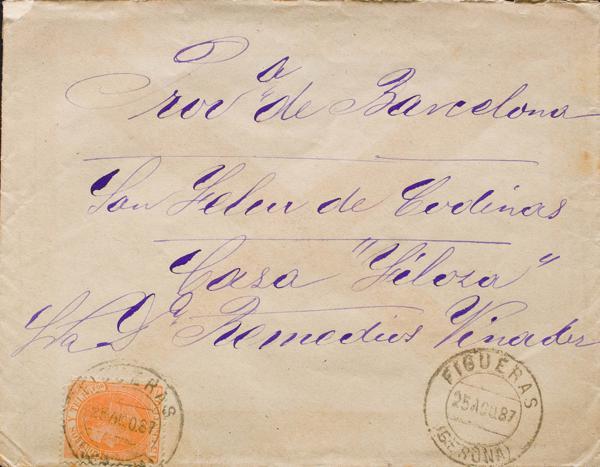 Prov.ª de Barcelona
San Feliu de Codinas
Casa "Filoza"
Sra D.ª Remedios Vinader
FIGUERAS
25 AGO. 87
(GERONA)
FIGUERAS
25 AGO. 87